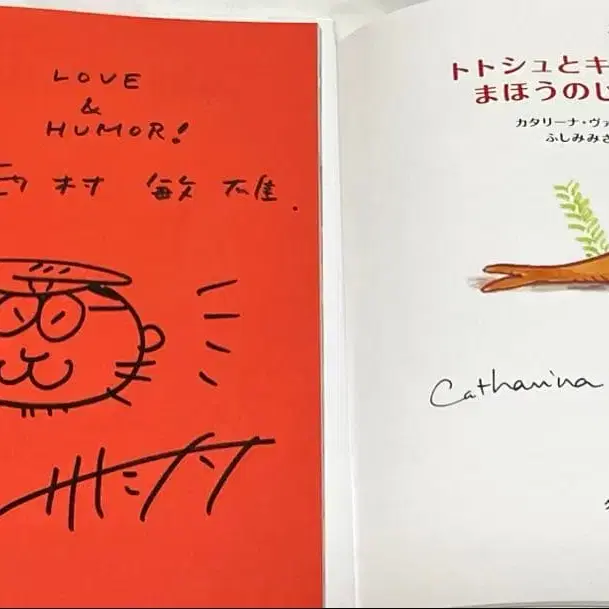 LOVE
&
HUMOR!
西村 敏雄.
トトシュとキ
まほうのじ
カタリーナ・ヴァ
ふしみみさ
Catharina